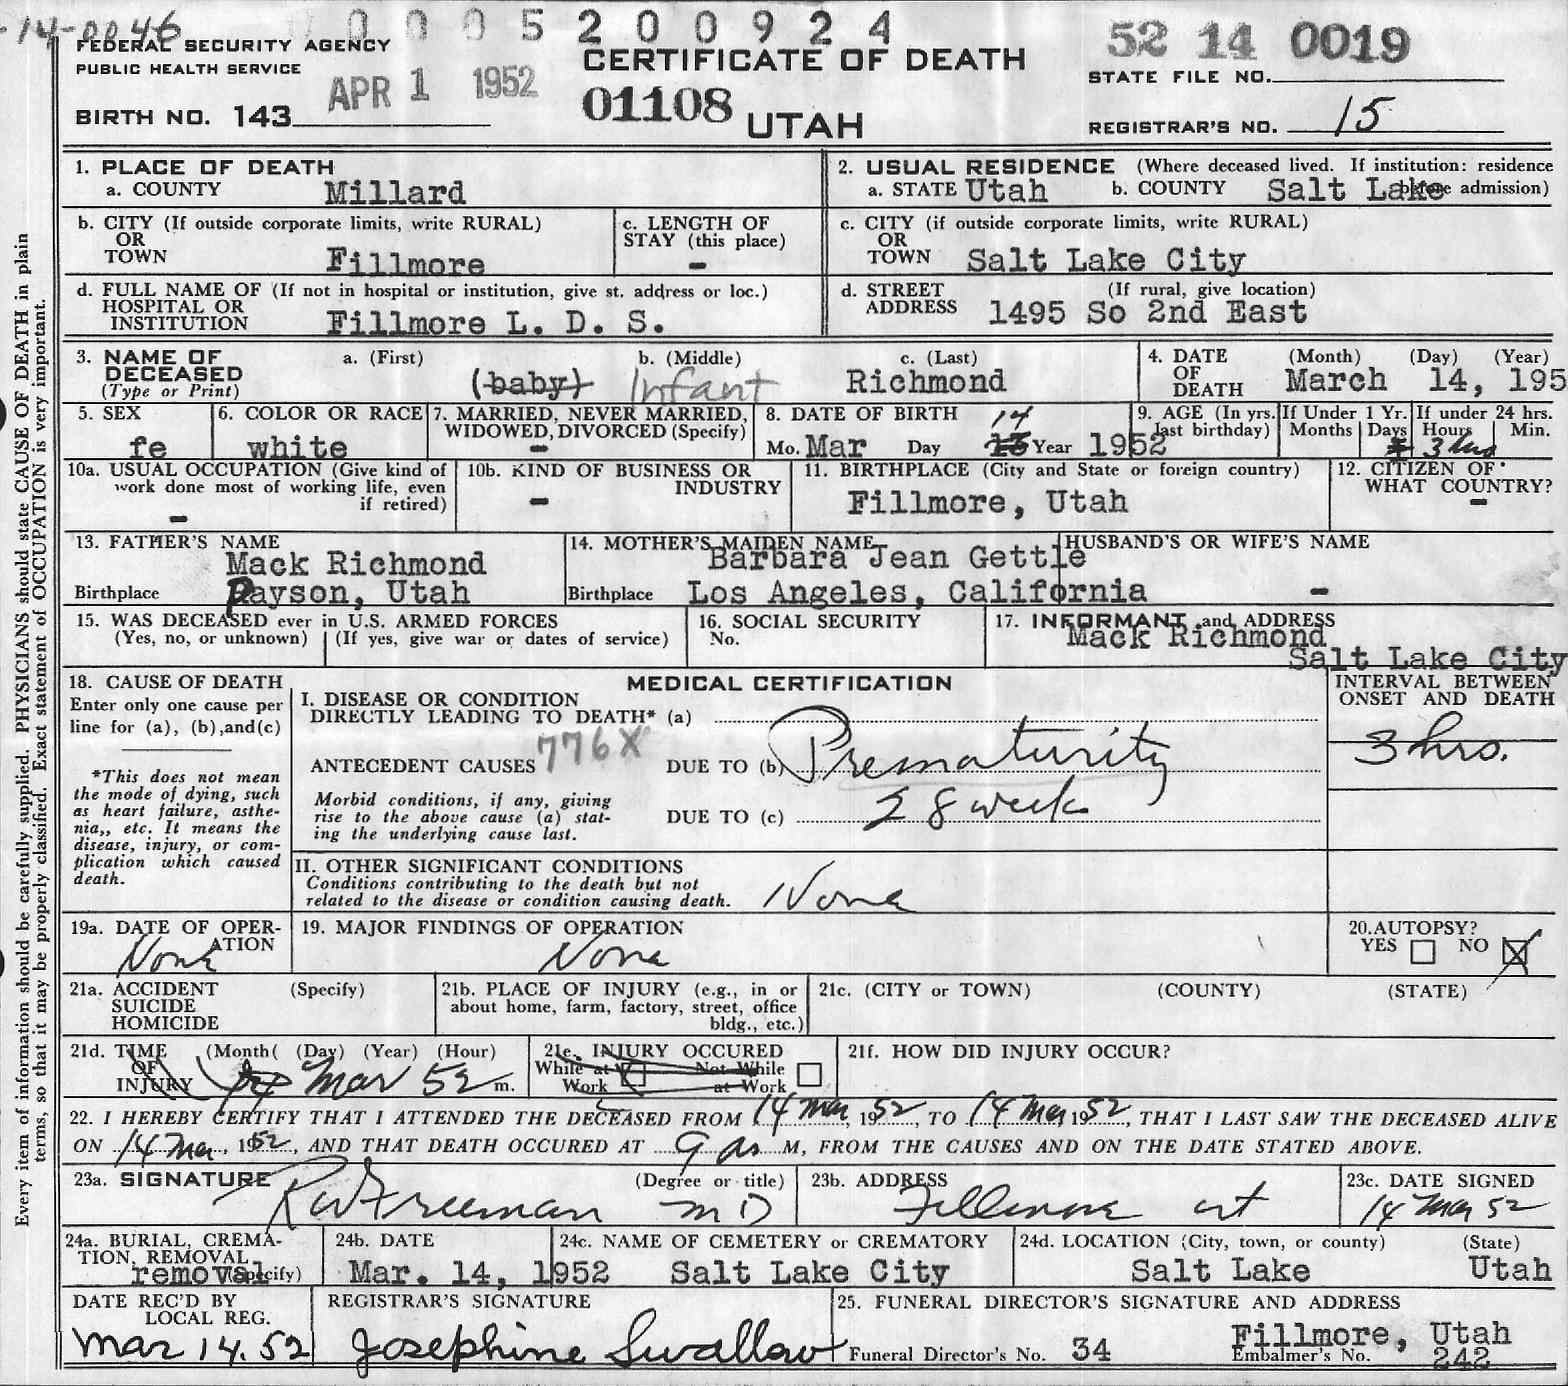 -14-0046
0 0 0 5 2 0 0 9 2 4
FEDERAL SECURITY AGENCY
PUBLIC HEALTH SERVICE
APR 1 1952
BIRTH NO. 143
CERTIFICATE OF DEATH
01108
UTAH
52 14 0019
STATE FILE NO.
REGISTRAR'S NO. 15
Every item of information should be carefully supplied. PHYSICIANS should state CAUSE OF DEATH in plain
terms, so that it may be properly classified. Exact statement of OCCUPATION is very important.
1. PLACE OF DEATH
a. COUNTY Millard
2. USUAL RESIDENCE (Where deceased lived. If institution: residence
before admission)
a. STATE Utah b. COUNTY Salt Lake
b. CITY (If outside corporate limits, write RURAL)
OR
TOWN Fillmore
c. LENGTH OF
STAY (this place)
-
c. CITY (if outside corporate limits, write RURAL)
OR
TOWN Salt Lake City
d. FULL NAME OF (If not in hospital or institution, give st. address or loc.)
HOSPITAL OR
INSTITUTION Fillmore L. D. S.
d. STREET (If rural, give location)
ADDRESS 1495 So 2nd East
3. NAME OF
DECEASED
(Type or Print)
a. (First) b. (Middle) c. (Last)
(baby) Infant Richmond
4. DATE
OF
DEATH
(Month) (Day) (Year)
March 14, 195
5. SEX
fe
6. COLOR OR RACE
white
7. MARRIED, NEVER MARRIED,
WIDOWED, DIVORCED (Specify)
-
8. DATE OF BIRTH 14
Mo. Mar Day 13 Year 1952
9. AGE (In yrs.
last birthday)
If Under 1 Yr.
Months Days
If under 24 hrs.
Hours Min.
3 hrs
10a. USUAL OCCUPATION (Give kind of
work done most of working life, even
if retired)
-
10b. KIND OF BUSINESS OR
INDUSTRY
-
11. BIRTHPLACE (City and State or foreign country)
Fillmore, Utah
12. CITIZEN OF
WHAT COUNTRY?
-
13. FATHER'S NAME
Mack Richmond
Birthplace Payson, Utah
14. MOTHER'S MAIDEN NAME
Barbara Jean Gettle
Birthplace Los Angeles, California
HUSBAND'S OR WIFE'S NAME
-
15. WAS DECEASED ever in U.S. ARMED FORCES
(Yes, no, or unknown) (If yes, give war or dates of service)
16. SOCIAL SECURITY
No.
17. INFORMANT and ADDRESS
Mack Richmond
Salt Lake City
18. CAUSE OF DEATH
Enter only one cause per
line for (a), (b),and(c)
*This does not mean
the mode of dying, such
as heart failure, asthe-
nia,, etc. It means the
disease, injury, or com-
plication which caused
death.
MEDICAL CERTIFICATION
I. DISEASE OR CONDITION
DIRECTLY LEADING TO DEATH* (a)
776X
ANTECEDENT CAUSES DUE TO (b) Prematurity
Morbid conditions, if any, giving
rise to the above cause (a) stat-
ing the underlying cause last.
DUE TO (c) 28 week
INTERVAL BETWEEN
ONSET AND DEATH
3 hrs.
II. OTHER SIGNIFICANT CONDITIONS
Conditions contributing to the death but not
related to the disease or condition causing death.
None
19a. DATE OF OPER-
ATION
None
19. MAJOR FINDINGS OF OPERATION
None
20. AUTOPSY?
YES NO X
21a. ACCIDENT (Specify)
SUICIDE
HOMICIDE
21b. PLACE OF INJURY (e.g., in or
about home, farm, factory, street, office
bldg., etc.)
21c. (CITY or TOWN) (COUNTY) (STATE)
21d. TIME (Month( (Day) (Year) (Hour)
OF
INJURY 14 Mar 52 m.
21e. INJURY OCCURED
While at Not While
Work at Work
21f. HOW DID INJURY OCCUR?
22. I HEREBY CERTIFY THAT I ATTENDED THE DECEASED FROM 14 Mar, 1952, TO 14 Mar, 1952, THAT I LAST SAW THE DECEASED ALIVE
ON 14 Mar, 1952, AND THAT DEATH OCCURED AT 9 a M, FROM THE CAUSES AND ON THE DATE STATED ABOVE.
23a. SIGNATURE (Degree or title)
R W Freeman MD
23b. ADDRESS
Fillmore ut
23c. DATE SIGNED
14 Mar 52
24a. BURIAL, CREMA-
TION, REMOVAL
(Specify)
removal
24b. DATE
Mar. 14, 1952
24c. NAME OF CEMETERY or CREMATORY
Salt Lake City
24d. LOCATION (City, town, or county) (State)
Salt Lake Utah
DATE REC'D BY
LOCAL REG.
Mar 14. 52
REGISTRAR'S SIGNATURE
Josephine Swallow
25. FUNERAL DIRECTOR'S SIGNATURE AND ADDRESS
Fillmore, Utah
Funeral Director's No. 34 Embalmer's No. 242